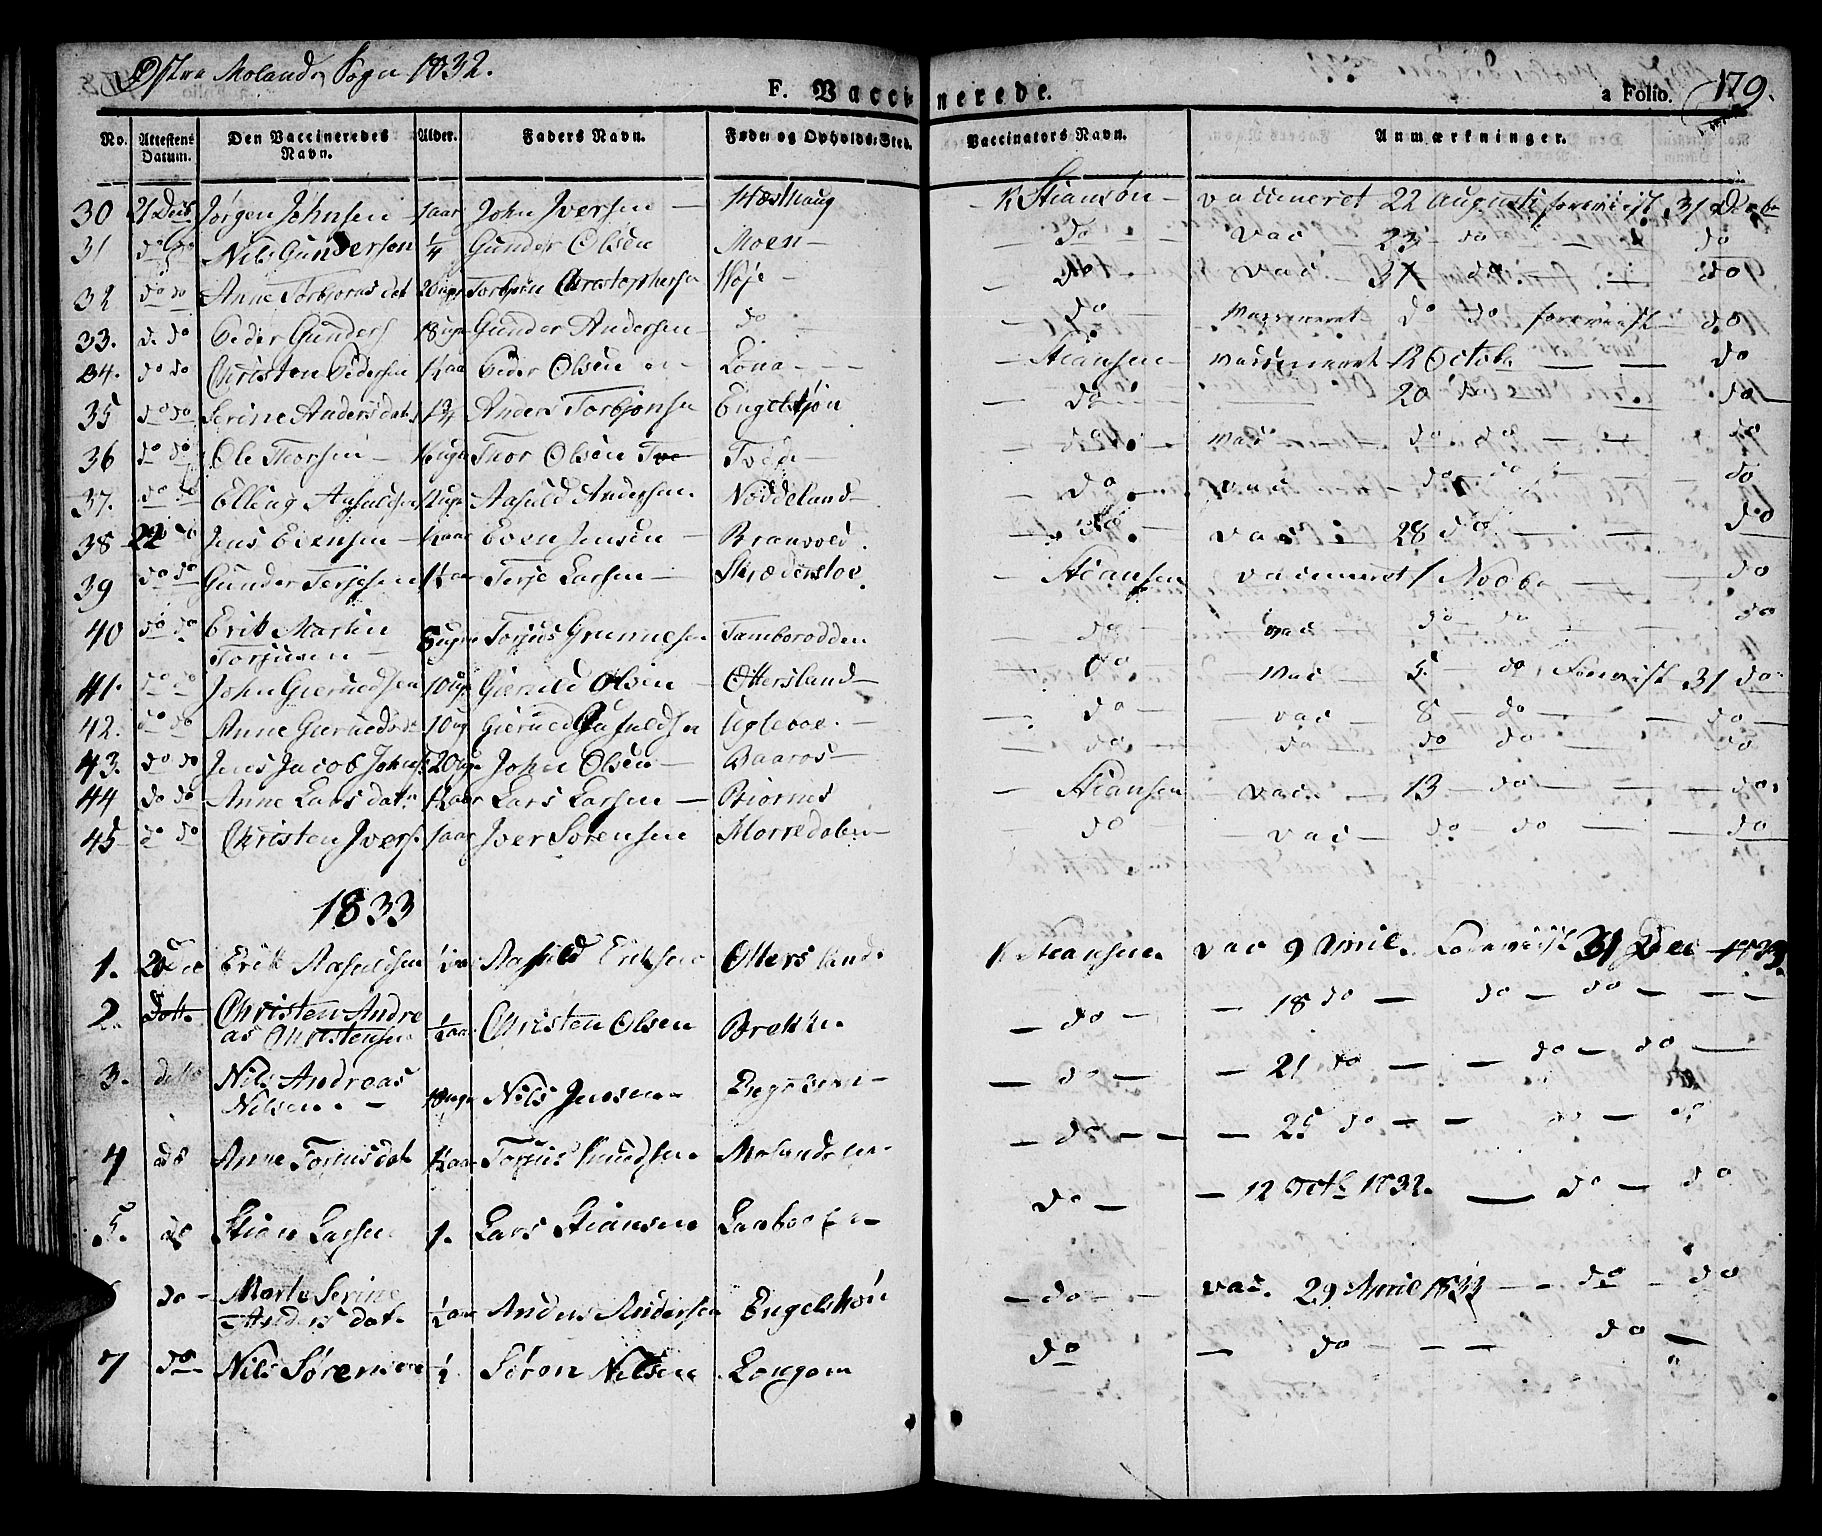 Østre Molands Sogn 1832.
F. Vaccinerede. a Folio. 179.
No. Attestens Datum. Den Vaccineredes Navn. Alder. Faders Navn. Føde- og Opholds-Sted. Vaccinators Navn. Anmærkninger.
30 21 Decb Jørgen Johnsen 1 aar John Iversen Næshaug K Stiansøn vaccineret 22 Augusti foreviist 31 Decbr
31 do do Nils Gundersen 1/4 Gunder Olsen Moen do vac 23 do do
32 do do Anne Torbjørnsdat 20 uger Torbjørn Christophersen Høje do vac 31 do do
33. do do Peder Gunders 18 uger Gunder Andersen do do vaccineret do do foreviist do
34. do do Christen Pedersen 1/2 aar Peder Olsen Løna Stiansen vaccineret 12 Octob do
35 do do Serine Andersdat 1 3/4 Anders Torbjønsen Engelskjøn do 20 do do
36 do do Ole Thorsen 12 uger Thor Olsen Tvede do vac do do do
37. do do Elling Aasuldsen 12 uger Aasuld Andersen Noddeland do vac do do do
38 22 do Jens Evensen 1/2 aar Even Jensen Brauvold do vac 28 do do
39 do do Gunder Terjesen 1/2 aar Terje Larsen Skrædderstøe Stiansen vaccineret 1 Novbr do
40 do do Erik Martin
Torjusen 6 uger Torjus Grunnesen Tamborodden do vac do do do
41. do do John Gierudsen 10 uger Gieruld Olsen Ottersland do vac 5 do foreviist 31 do
42. do do Anne Gierueds 10 ug Gierued Aasuldsen Uglevae do vac 8 do do
43. do do Jens Jacob Johns 20 uger John Olsen Baaros do do do do do
44 do do Anne Larsdat 1/2 aar Lars Larsen Biørnes Stiansen vac 13 do do
45 do do Christen Ivers 1 aar Iver Sørensen Morredalen do vac do do do
1833
1. 20 Dec Erik Aasuldsen 1/2 aar Aasuld Eriksen Ottersland K Stiansen vac 9 April. Foreviist 31 Dec 1833.
2. Dotto Christen Andre
as Christensen 1/2 aar Christen Olsen Brekke do 18 do do do
3. dotto Nils Andreas
Nilsen 18 uger Nils Jensen do 21 do do do
4 do Anne Torjusdat 1/2 aar Torjus Knudsen do 25 do do do
5. do Stian Larsen 1. Lars Stiansen do 12 Octb 1832. do do
do Marte Serine
Andersdat 1/2 aar Anders Andersen Engelskøn do vac. 29 April 1833 do do
7 do Nils Sørensen 1/2 Søren Nilsen Longom do do do